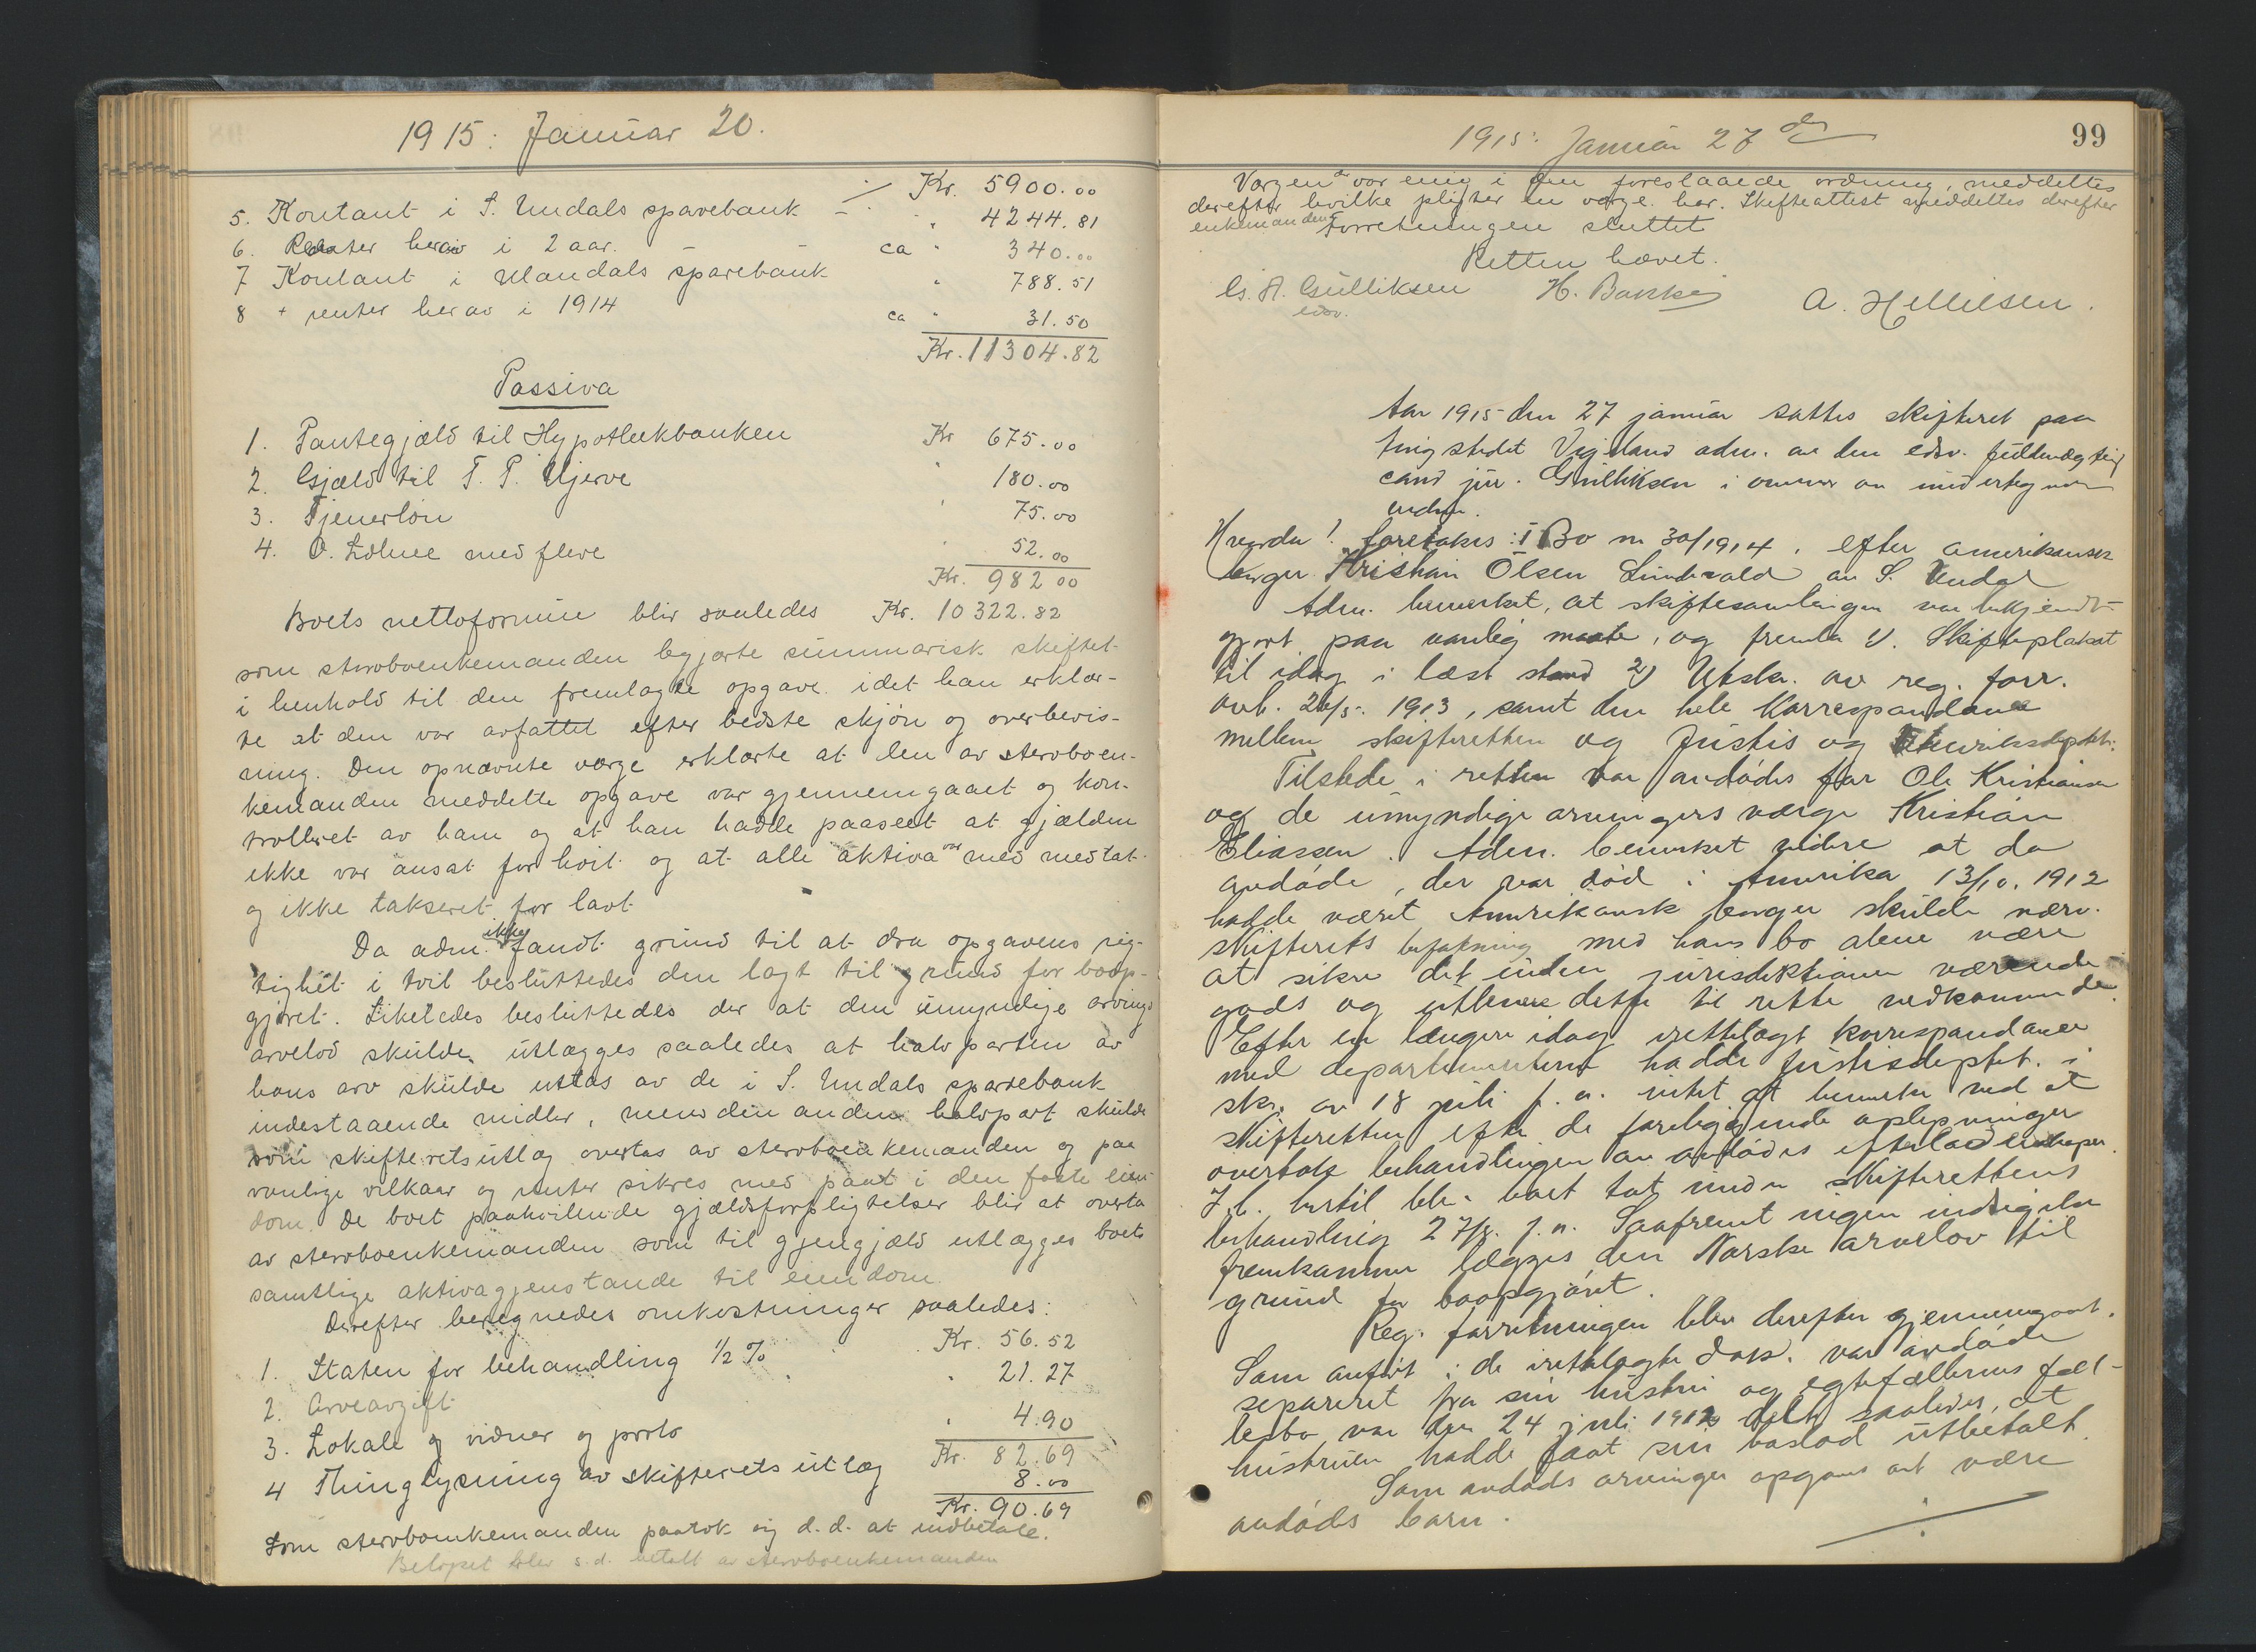 1915: Januar 20.
./. Kr. 5900.00
5. Kontant i S. Undals sparebank - " 4244.81
6. Renter herav i 2 aar. - - ca " 340.00
7 Kontant i Mandals sparebank " 788.51
8 + renter herav i 1914 ca " 31.50
Kr. 11304.82
Passiva
1. Pantegjæld til Hypothekbanken Kr 675.00
2. Gjæld til T. T. " 180.00
3. Tjenerløn " 75.00
4. O. med flere " 52.00
Kr. 982 00
Boets nettoformue blir saaledes Kr. 10322.82
som stervboenkemanden begjærte summarisk skiftet
i henhold til den fremlagte opgave. idet han erklær-
te at den var avfattet efter bedste skjøn og overbevis-
ning. Den opnævnte værge erklærte at den av stervboen-
kemanden meddelte opgave var gjennemgaaet og kon-
trolleret av ham og at han hadde paaseet at gjælden
ikke var ansat for høit og at alle aktiva var med medtat
og ikke takseret for lavt
Da adm. ikke fandt grund til at dra opgavens rig-
tighet i tvil besluttedes den lagt til grund for boop-
gjøret. Likeledes besluttedes der at den umyndige arvings
arvelod skulde utlægges saaledes at halvparten av
hans arv skulde uttas av de i S. Undals sparebank
indestaaende midler, mens den anden halvpart skulde
som skifteretsutlæg overtas av stervboenkemanden og paa
vanlige vilkaar og renter sikres med pant i den faste eien-
dom. De boet paahvilende gjældsforpligtelser blir at overta
av stervboenkemanden som til gjengjæld utlægges boets
samtlige aktivagjenstande til eiendom.
Derefter beregnedes omkostninger saaledes:
1. Staten for behandling 1/2 % Kr. 56.52
2. Arveavgift " 21.27
3. Lokale og vidner og porto " 4.90
Kr. 82.69
4 Thinglysning av skifterets utlæg 8.00
Kr. 90.69
Som stervboenkemanden paatok sig d.d. at indbetale.
Beløpet blev s.d. betalt av stervboenkemanden
1915: Januar 27de
99
Værgen der var enig i den foreslaaede ordning, meddeltes
derefter hvilke pligter en værge har. Skifteattest meddeltes derefter
enkemanden Forretningen sluttet
Retten hævet.
G. A. Gulliksen H. Bakke A. H. Nilsen.
edsv.
Aar 1915 den 27 januar sattes skifteret paa
tingstedet Vigeland adm. av den edsv. fuldmægtig
cand jur. Gulliksen i overvær av undertegnede
vidner.
Hvorda! foretokes: I Bo nr 30/1914. efter amerikansk
borger Kristian Olsen Lindvald av S. Undal
Adm. bemerket, at skiftesamlingen var bekjendt-
gjort paa vanlig maate, og fremla 1). Skifteplakat
til idag i læst stand 2) Utskr. av reg. forr.
avh. 26/5. 1913, samt den hele Korrespondance
mellem skifteretten og Justis og Utenriksdeptet.
Tilstede i retten var avdødes far Ole Kristiansen
og de umyndige arvingers værge Kristian
Eliassen. Adm. bemerket videre at da
avdøde, der var død i Amerika 13/10. 1912
hadde været Amerikansk borger skulde nærv.
skifterets befatning med hans bo alene være
at sikre det inden jurisdiktionen værende
gods og utlevere dette til rette vedkommende.
Efter en længere idag irettelagt korrespondance
med departementene hadde Justisdeptet. i
skr. av 18 juli f. a. intet at bemerke ved at
skifteretten efter de foreliggende oplysninger
overtok behandlingen av avdødes efterladenskaper.
I h. hertil blev boet tat under skifterettens
behandling 27/8. f. a. Saafremt ingen indsigelse
fremkommer lægges den Norske arvelov til
grund for boopgjøret.
Reg. forretningen blev derefter gjennemgaat.
Som anført i de irettelagte dok. var avdøde
separeret fra sin hustru og egtefællernes fæl-
lesbo var den 24 juli 1912 delt saaledes, at
hustruen hadde faat sin boslod utbetalt.
Som avdøds arvinger opgaves at være
avdødes barn.
./.